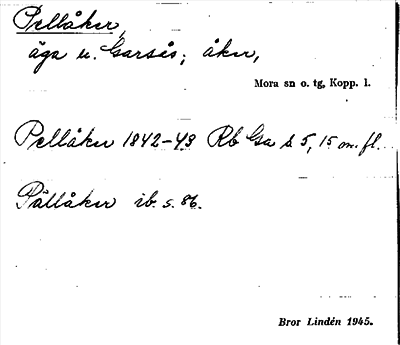 Pellåker,
äga u. Garsås; åker,
Mora sn o. tg, Kopp. l.
Pellåker 1842–43 Rb Ga s. 5, 15 m. fl.
Pällåker ib. s. 86.
Bror Lindén 1945.